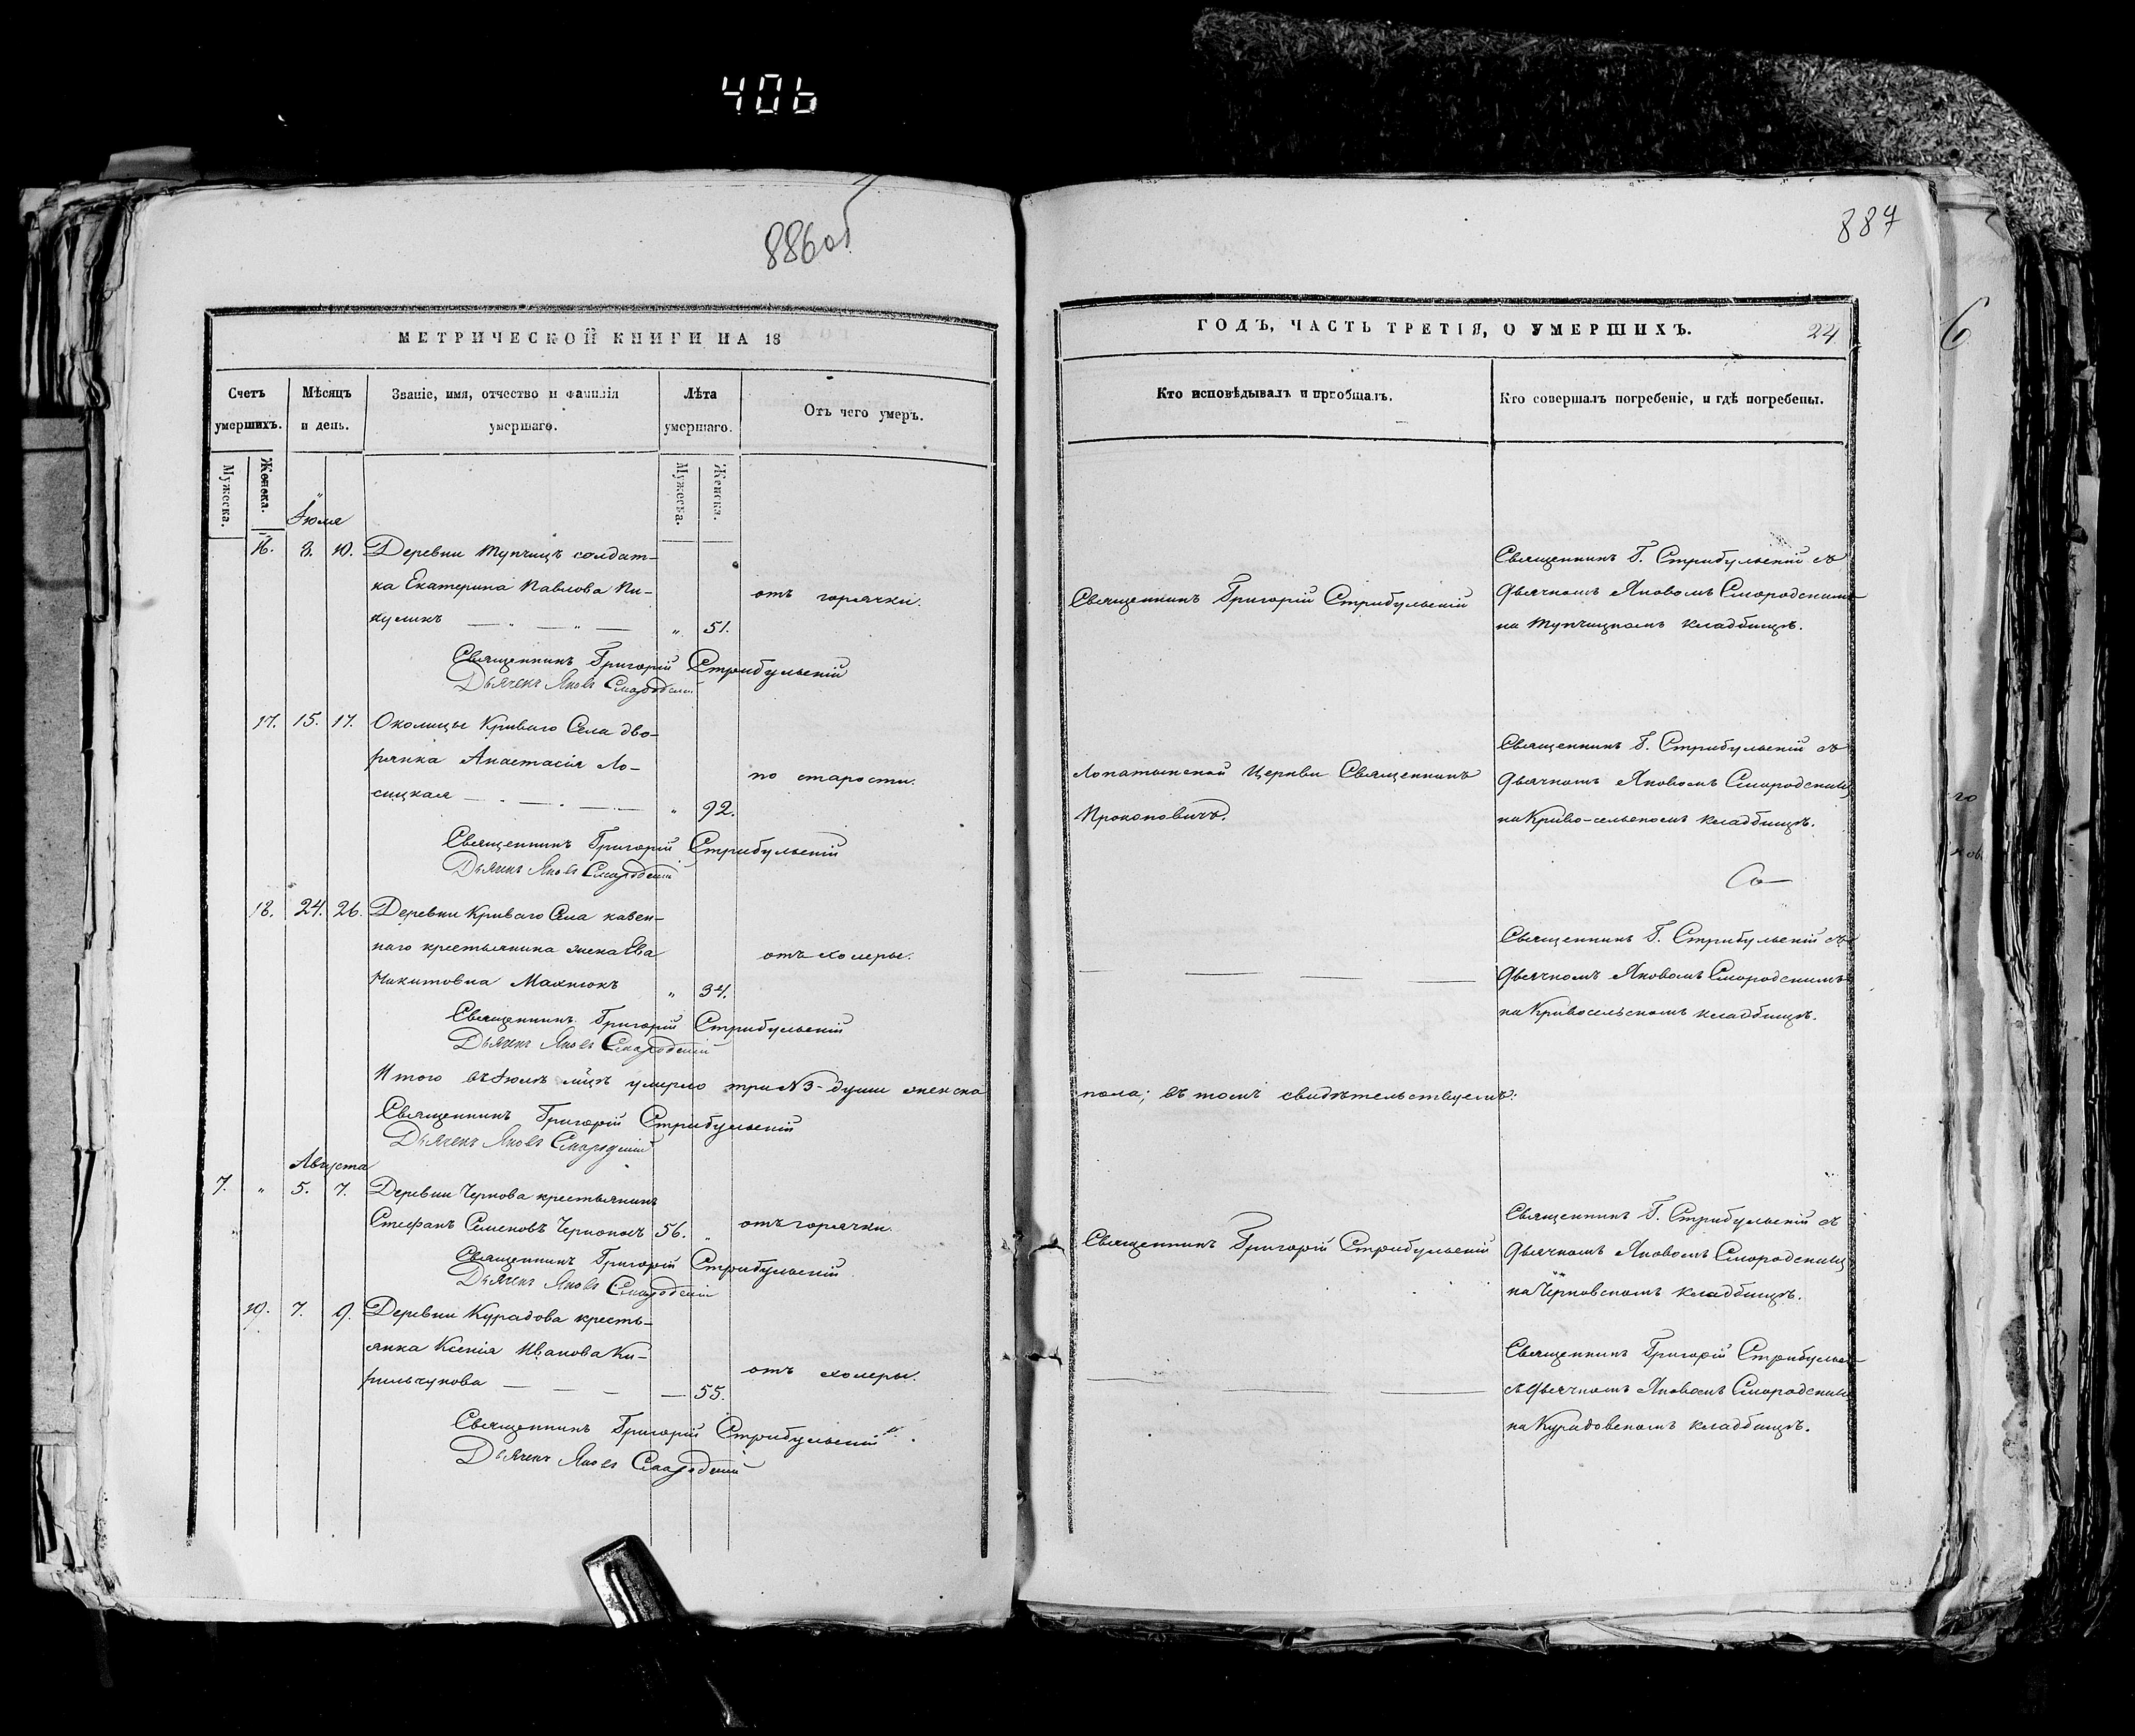 406
886об
МЕТРИЧЕСКОЙ КНИГИ НА 18
Счетъ умершихъ.
Мѣсяцъ и день.
Званіе, имя, отчество и фамилія умершаго.
Лѣта умершаго.
Отъ чего умеръ.
Мужеска.
Женска.
Мужеска.
Женска.
Іюля
16. 8. 10. Деревни Тупчицъ солдат-
ка Екатерина Павлова Пи- отъ горячки.
куликъ „ 51.
Священникъ Григорій Стрибульскій
Дьячекъ Яковъ Смородскій
17. 15. 17. Околицы Криваго Села дво-
рянка Анастасія Ло- по старости.
сицкая „ 92.
Священникъ Григорій Стрибульскій
Дьячекъ Яковъ Смородскій
18. 24. 26. Деревни Криваго Села казен-
наго крестьянина жена Ева отъ холеры.
Никитовна Махнюкъ „ 34.
Священникъ Григорій Стрибульскій
Дьячекъ Яковъ Смородскій
Итого въ Іюлѣ мцѣ умерло три № 3 - души женска
Священникъ Григорій Стрибульскій
Дьячекъ Яковъ Смородскій
Августа
7. „ 5. 7. Деревни Чернова крестьянинъ
Стефанъ Семеновъ 56. „ отъ горячки.
Священникъ Григорій Стрибульскій
Дьячекъ Яковъ Смородскій
19. 7. 9. Деревни Курадова кресть-
янка Ксенія Иванова Ки- отъ холеры.
рильчукова 55.
Священникъ Григорій Стрибульскій
Дьячекъ Яковъ Смородскій
887
ГОДЪ, ЧАСТЬ ТРЕТІЯ, О УМЕРШИХЪ.
24
Кто исповѣдывалъ и пріобщалъ.
Кто совершалъ погребеніе, и гдѣ погребены.
Священникъ Г. Стрибульскій съ
Священникъ Григорій Стрибульскій
Дьячкомъ Яковомъ Смородскимъ
на Тупчицкомъ кладбищѣ.
Священникъ Г. Стрибульскій съ
Лопатынской Церкви Священникъ
Дьячкомъ Яковомъ Смородскимъ
Прокоповичъ.
на Криво-сельскомъ кладбищѣ.
Священникъ Г. Стрибульскій съ
Дьячкомъ Яковомъ Смородскимъ
на Кривосельскомъ кладбищѣ.
пола; въ томъ свидѣтельствуемъ:
Священникъ Г. Стрибульскій съ
Священникъ Григорій Стрибульскій
Дьячкомъ Яковомъ Смородскимъ
на Черновскомъ кладбищѣ.
Священникъ Григорій Стрибульскій
съ Дьячкомъ Яковомъ Смородскимъ
на Курадовскомъ кладбищѣ.
6
го